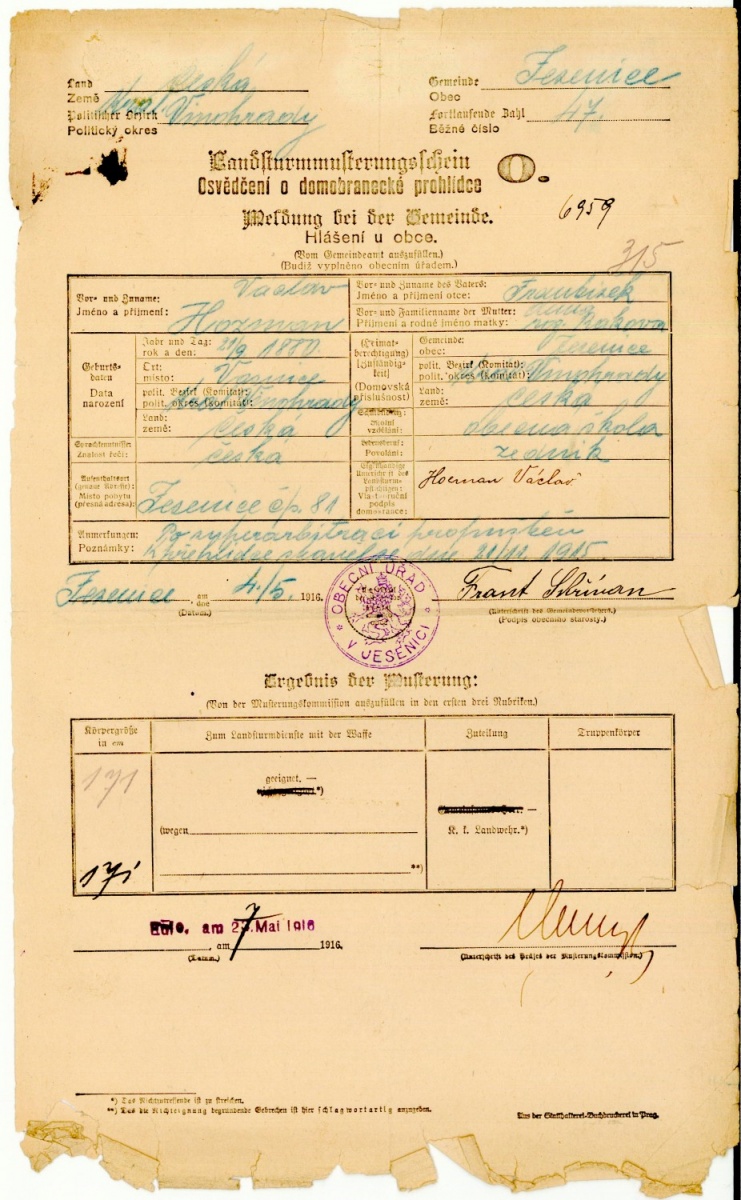 Land Česká
Země
Politischer Bezirk Král. Vinohrady
Politický okres
Gemeinde Jesenice
Obec
Fortlaufende Zahl 47.
Běžné číslo
Landsturmmusterungsschein O.
Osvědčení o domobranecké prohlídce
Meldung bei der Gemeinde.
Hlášení u obce.
6959
(Vom Gemeindeamt auszufüllen.)
(Budiž vyplněno obecním úřadem.)
315
Vor- und Zuname:
Jméno a příjmení:
Václav
Horman
Vor- und Zuname des Vaters:
Jméno a příjmení otce:
František
Vor- und Familienname der Mutter:
Příjmení a rodné jméno matky:
Geburts-
daten
Data
narození
Jahr und Tag:
rok a den:
21/9 1880
Ort:
místo:
polit. Bezirk (Komitat):
polit. okres (komitát):
Vinohrady
Land:
země:
česká
(Heimat-
berechtigung)
(Zuständig-
keit)
(Domovská
příslušnost)
Gemeinde:
obec:
Jesenice
polit. Bezirk (Komitat):
polit. okres (komitát):
Vinohrady
Land:
země:
česká
Sprachkenntnisse:
Znalost řečí:
česká
Schulbildung:
Školní
vzdělání:
obecná škola
Lebensberuf:
Povolání:
zedník
Aufenthaltsort
(genaue Adresse):
Místo pobytu
(přesná adresa):
Jesenice čp. 81
Eigenhändige
Unterschrift des
Landsturm-
pflichtigen:
Vlastnoruční
podpis
domobrance:
Horman Václav
Anmerkungen:
Poznámky:
Po superarbitraci propuštěn
K přehlídce stavěl se dne 21/12 1915.
Jesenice am 4./5. 1916.
dne
(Datum.)
OBECNÍ ÚŘAD
V JESENICI
(Unterschrift des Gemeindevorstehers.)
(Podpis obecního starosty.)
Ergebnis der Musterung:
(Von der Musterungskommission auszufüllen in den ersten drei Rubriken.)
Körpergröße
in cm
Zum Landsturmdienste mit der Waffe
Zuteilung
Truppenkörper
171
geeignet. —
*)
(wegen
**)
171
—
K. k. Landwehr.*)
am 7 Mai 1916
, am 1916.
(Datum.)
(Unterschrift des Präses der Musterungskommission.)
*) Das Nichtzutreffende ist zu streichen.
**) Das die Nichteignung begründende Gebrechen ist hier schlagwortartig anzugeben.
Aus der Statthalterei-Buchdruckerei in Prag.